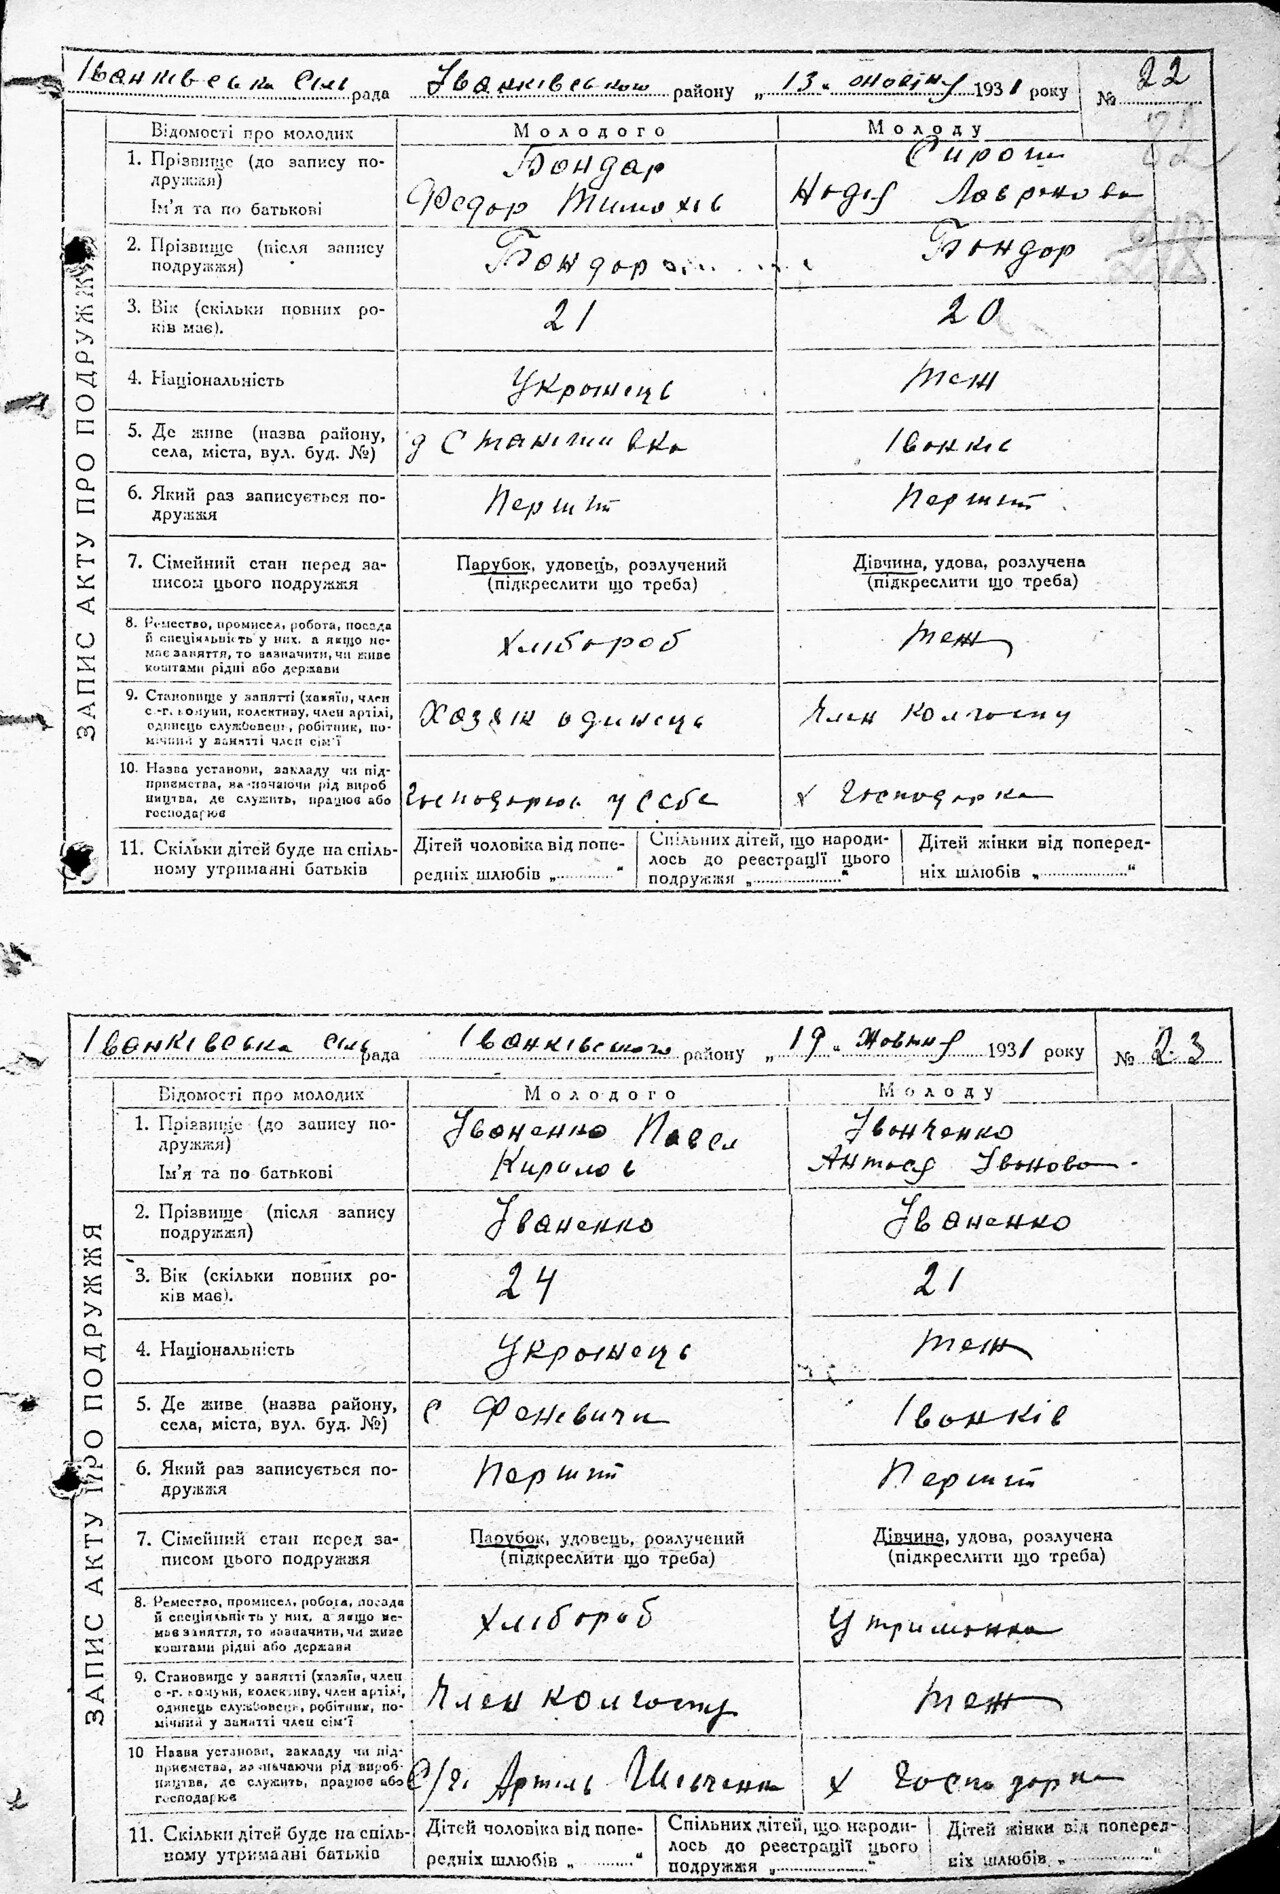 Іванківська сіль рада Іванківського району „ 13 „ жовтня 1931 року № 22
Відомості про молодих Молодого Молоду
1. Прізвище (до запису по-
дружжя)
Ім'я та по батькові
Бондар
Федор Тимохів
Сирош
Надія Лавренова
2. Прізвище (після запису
подружжя)
Бондар
Бондор
3. Вік (скільки повних ро-
ків має).
21
20
4. Національність
Украінець
теж
5. Де живе (назва району,
села, міста, вул. буд. №)
Іванків
6. Який раз записується по-
дружжя
Першит
Першит
7. Сімейний стан перед за-
писом цього подружжя
Парубок, удовець, розлучений
(підкреслити що треба)
Дівчина, удова, розлучена
(підкреслити що треба)
8. Ремество, промисел, робота, посада
й спеціяльність у них, а якщо не-
має заняття, то зазначити, чи живе
коштами рідні або держави
Хлібороб
теж
9. Становище у занятті (хазяїн, член
с.-г. комуни, колективу, член артілі,
одинець службовець, робітник, по-
мічний у занятті член сім'ї
Хазяін одинець
Член колгоспу
10. Назва установи, закладу чи під-
приємства, зазначаючи рід вироб
ництва, де служить, працює або
господарює
Господарює у себе
х Господарка
11. Скільки дітей буде на спіль-
ному утриманні батьків
Дітей чоловіка від попе-
редніх шлюбів „ “
Спільних дітей, що народи-
лось до реєстрації цього
подружжя „ “
Дітей жінки від поперед-
ніх шлюбів „ “
ЗАПИС АКТУ ПРО ПОДРУЖЖЯ
Іванківська сіль рада Іванківського району „ 19 „ жовтня 1931 року № 23
Відомості про молодих Молодого Молоду
1. Прізвище (до запису по-
дружжя)
Ім'я та по батькові
Іваненко Павел
Кирилов
Іванченко
Антося Іванова
2. Прізвище (після запису
подружжя)
Іваненко
Іваненко
3. Вік (скільки повних ро-
ків має).
24
21
4. Національність
Украінець
теж
5. Де живе (назва району,
села, міста, вул. буд. №)
с Феневичи
Іванків
6. Який раз записується по-
дружжя
Першит
Першит
7. Сімейний стан перед за-
писом цього подружжя
Парубок, удовець, розлучений
(підкреслити що треба)
Дівчина, удова, розлучена
(підкреслити що треба)
8. Ремество, промисел, робота, посада
й спеціяльність у них, а якщо не-
має заняття, то зазначити, чи живе
коштами рідні або держави
Хлібороб
Утриманка
9. Становище у занятті (хазяїн, член
с.-г. комуни, колективу, член артілі,
одинець службовець, робітник, по-
мічний у занятті член сім'ї
Член колгоспу
теж
10 Назва установи, закладу чи під-
приємства, зазначаючи рід вироб-
ництва, де служить, працює або
господарює
С/г. Артиль Шевченка
х Господарка
11. Скільки дітей буде на спіль-
ному утриманні батьків
Дітей чоловіка від попе-
редніх шлюбів „ “
Спільних дітей, що народи-
лось до реєстрації цього
подружжя „ “
Дітей жінки від поперед-
ніх шлюбів „ “
ЗАПИС АКТУ ПРО ПОДРУЖЖЯ